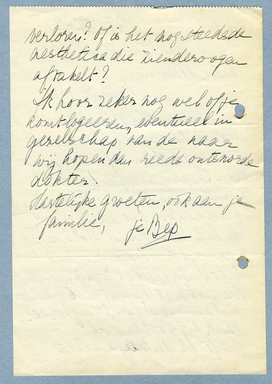 verloren? Of is het nog steeds de
aesthetica die zienderogen
aftakelt?
Ik hoor zeker nog wel of je
komt logeeren, eventueel in
gezelschap van de naar
wij hopen dan reeds ontwarde
dokter.
Hartelijke groeten, ook aan je
familie, je Bep